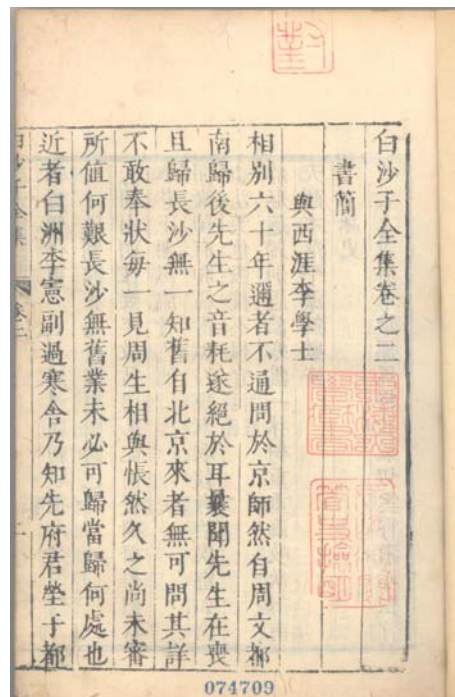 白沙子全集卷之二
書簡
與西涯李學士
相别六十年邇者不通問於京師然自周文都
南歸後先生之音耗遂絕於耳曩聞先生在喪
且歸長沙無一知舊自北京來者無可問其詳
不敢奉狀每一見周生相與悵然久之尚未審
所值何艱長沙無舊業未必可歸當歸何處也
近者白洲李憲副過寒舍乃知先府君塋于都
白沙子全集
卷二
一
074709